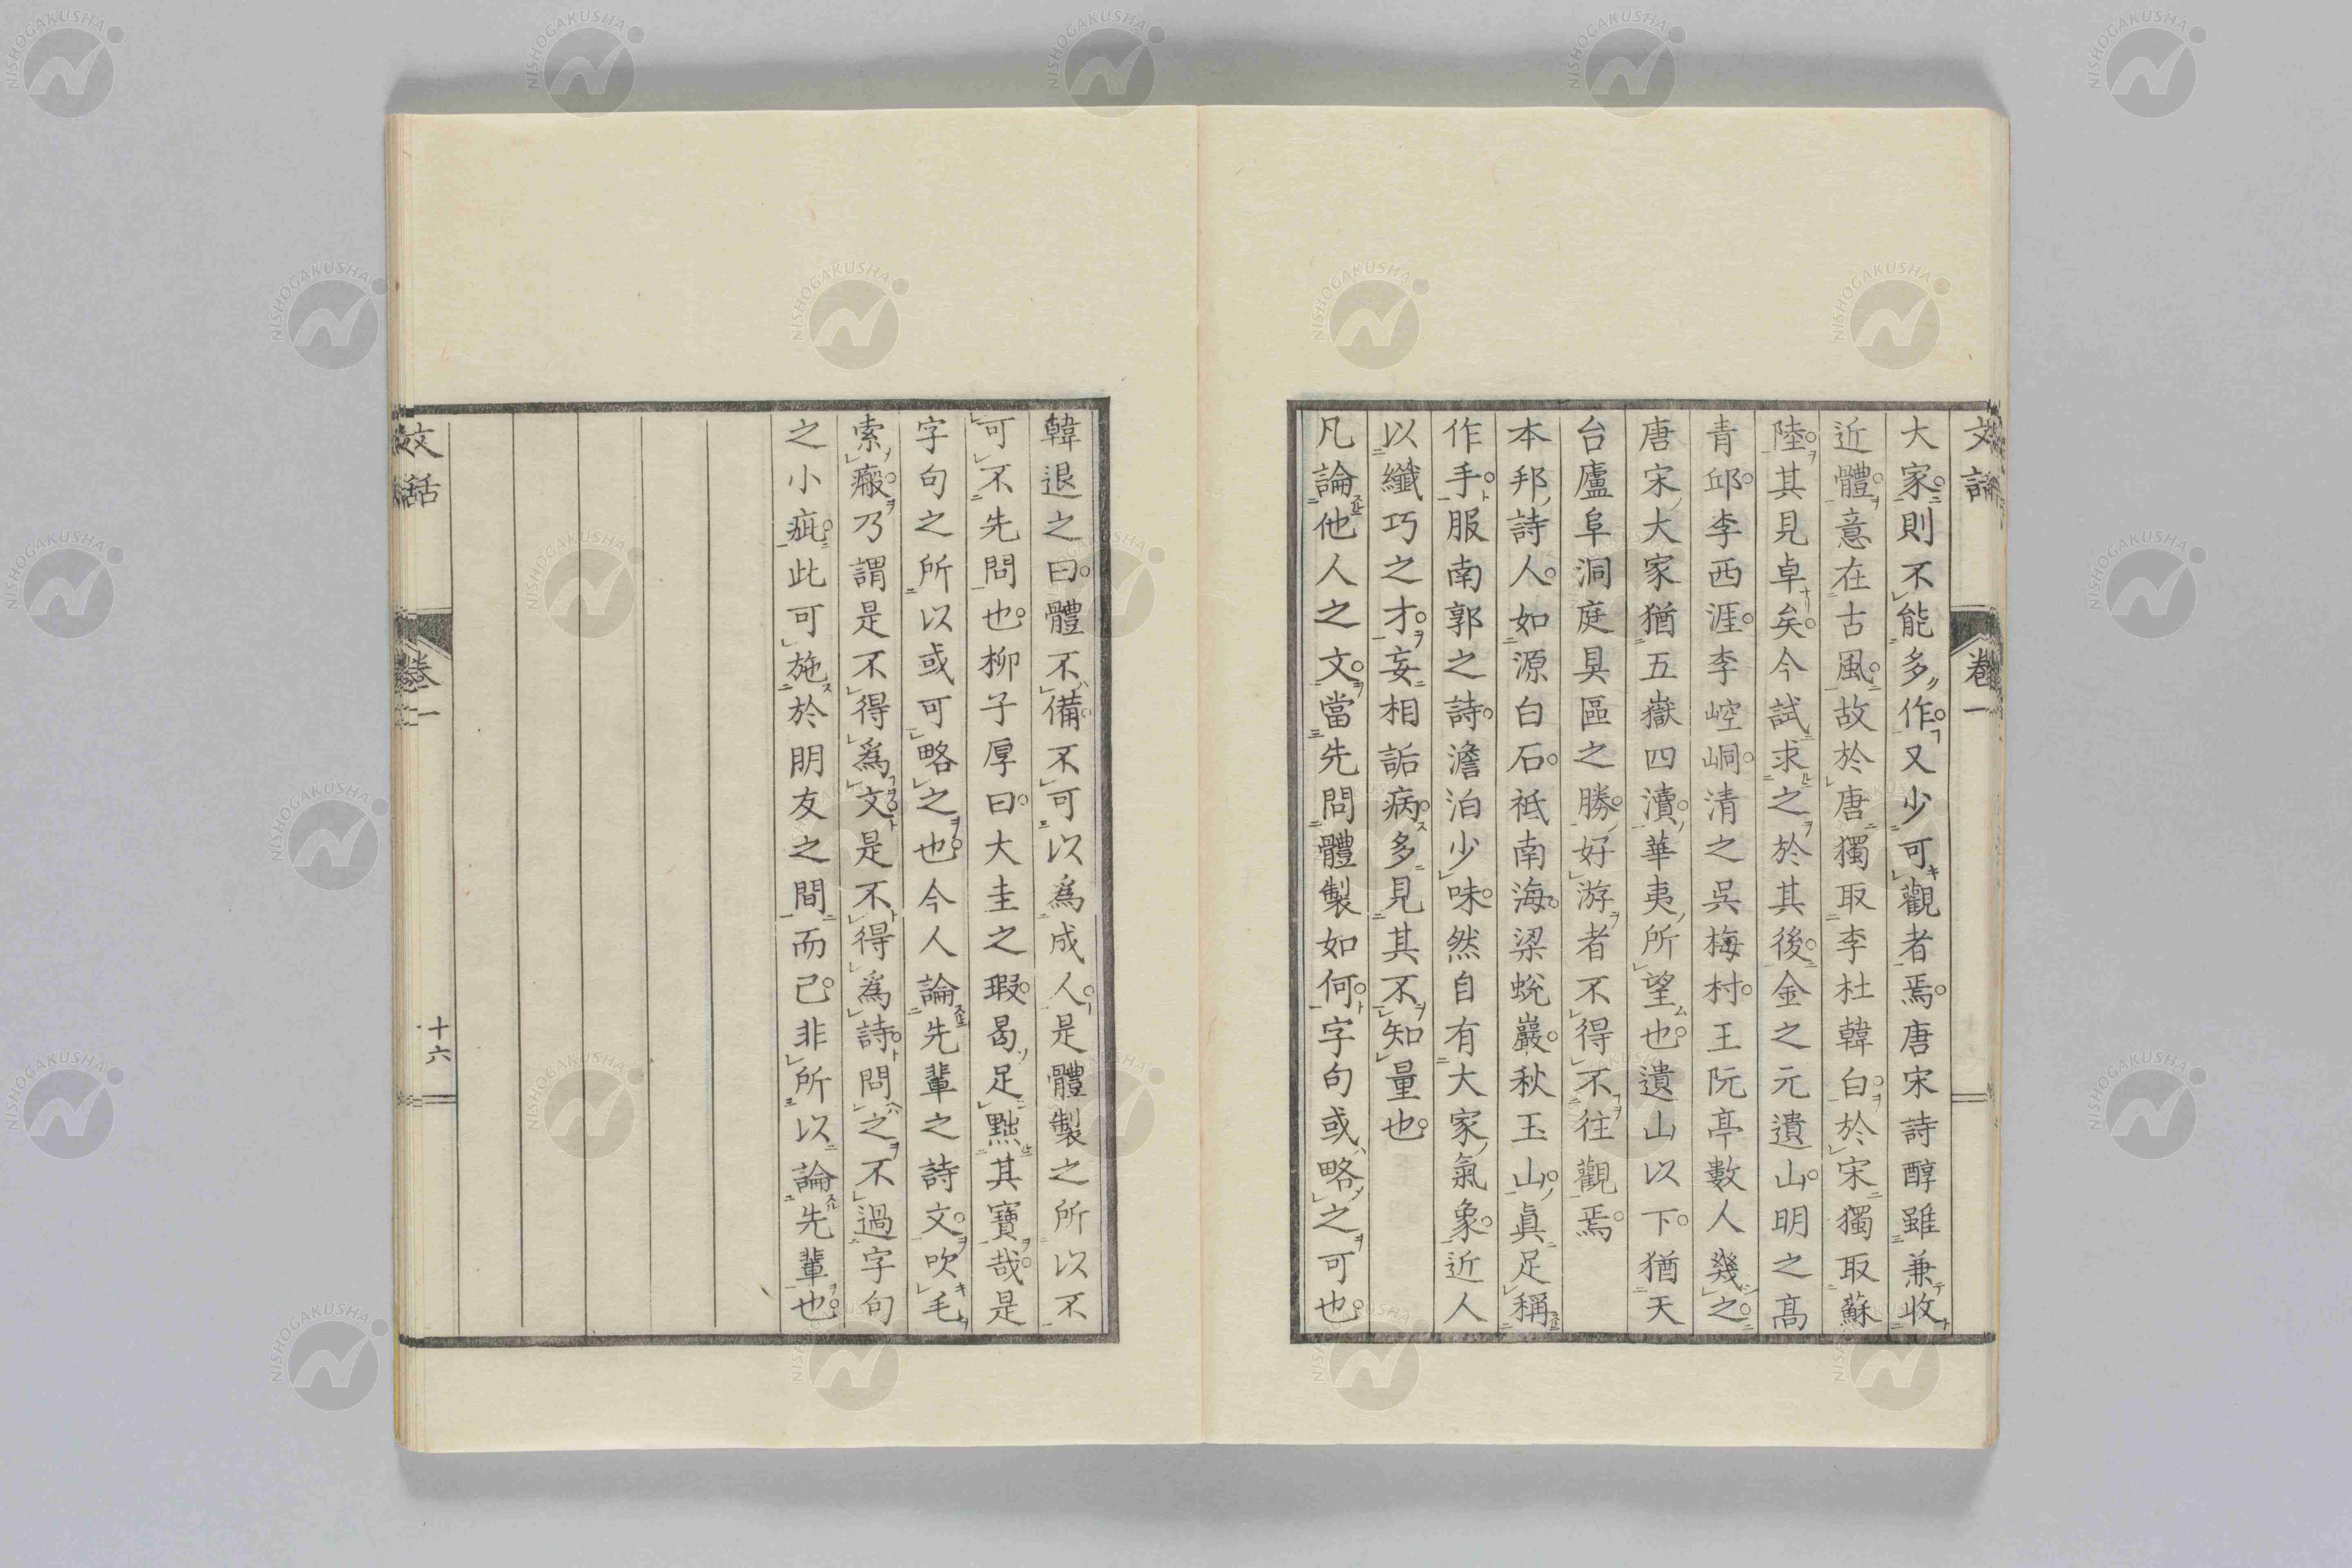 文話
卷一
大家則不能多作又少可觀者焉唐宋詩醇雖兼收
近體意在古風故於唐獨取李杜韓白於宋獨取蘇
陸其見卓矣今試求之於其後金之元遺山明之高
青邱李西涯李崆峒清之吳梅村王阮亭數人幾之
唐宋大家猶五嶽四瀆華夷所望也遺山以下猶天
台廬阜洞庭具區之勝好游者不得不往觀焉
本邦詩人如源白石祗南海梁蛻巖秋玉山眞足稱
作手服南郭之詩澹泊少味然自有大家氣象近人
以纖巧之才妄相詬病多見其不知量也
凡論他人之文當先問體製如何字句或略之可也
韓退之曰體不備不可以爲成人是體製之所以不
可不先問也柳子厚曰大圭之瑕曷足黜其寶哉是
字句之所以或可略之也今人論先輩之詩文吹毛
索瘢乃謂是不得爲文是不得爲詩問之不過字句
之小疵此可施於朋友之間而己非所以論先輩也
文話
卷一
十六
NISHOGAKUSHA